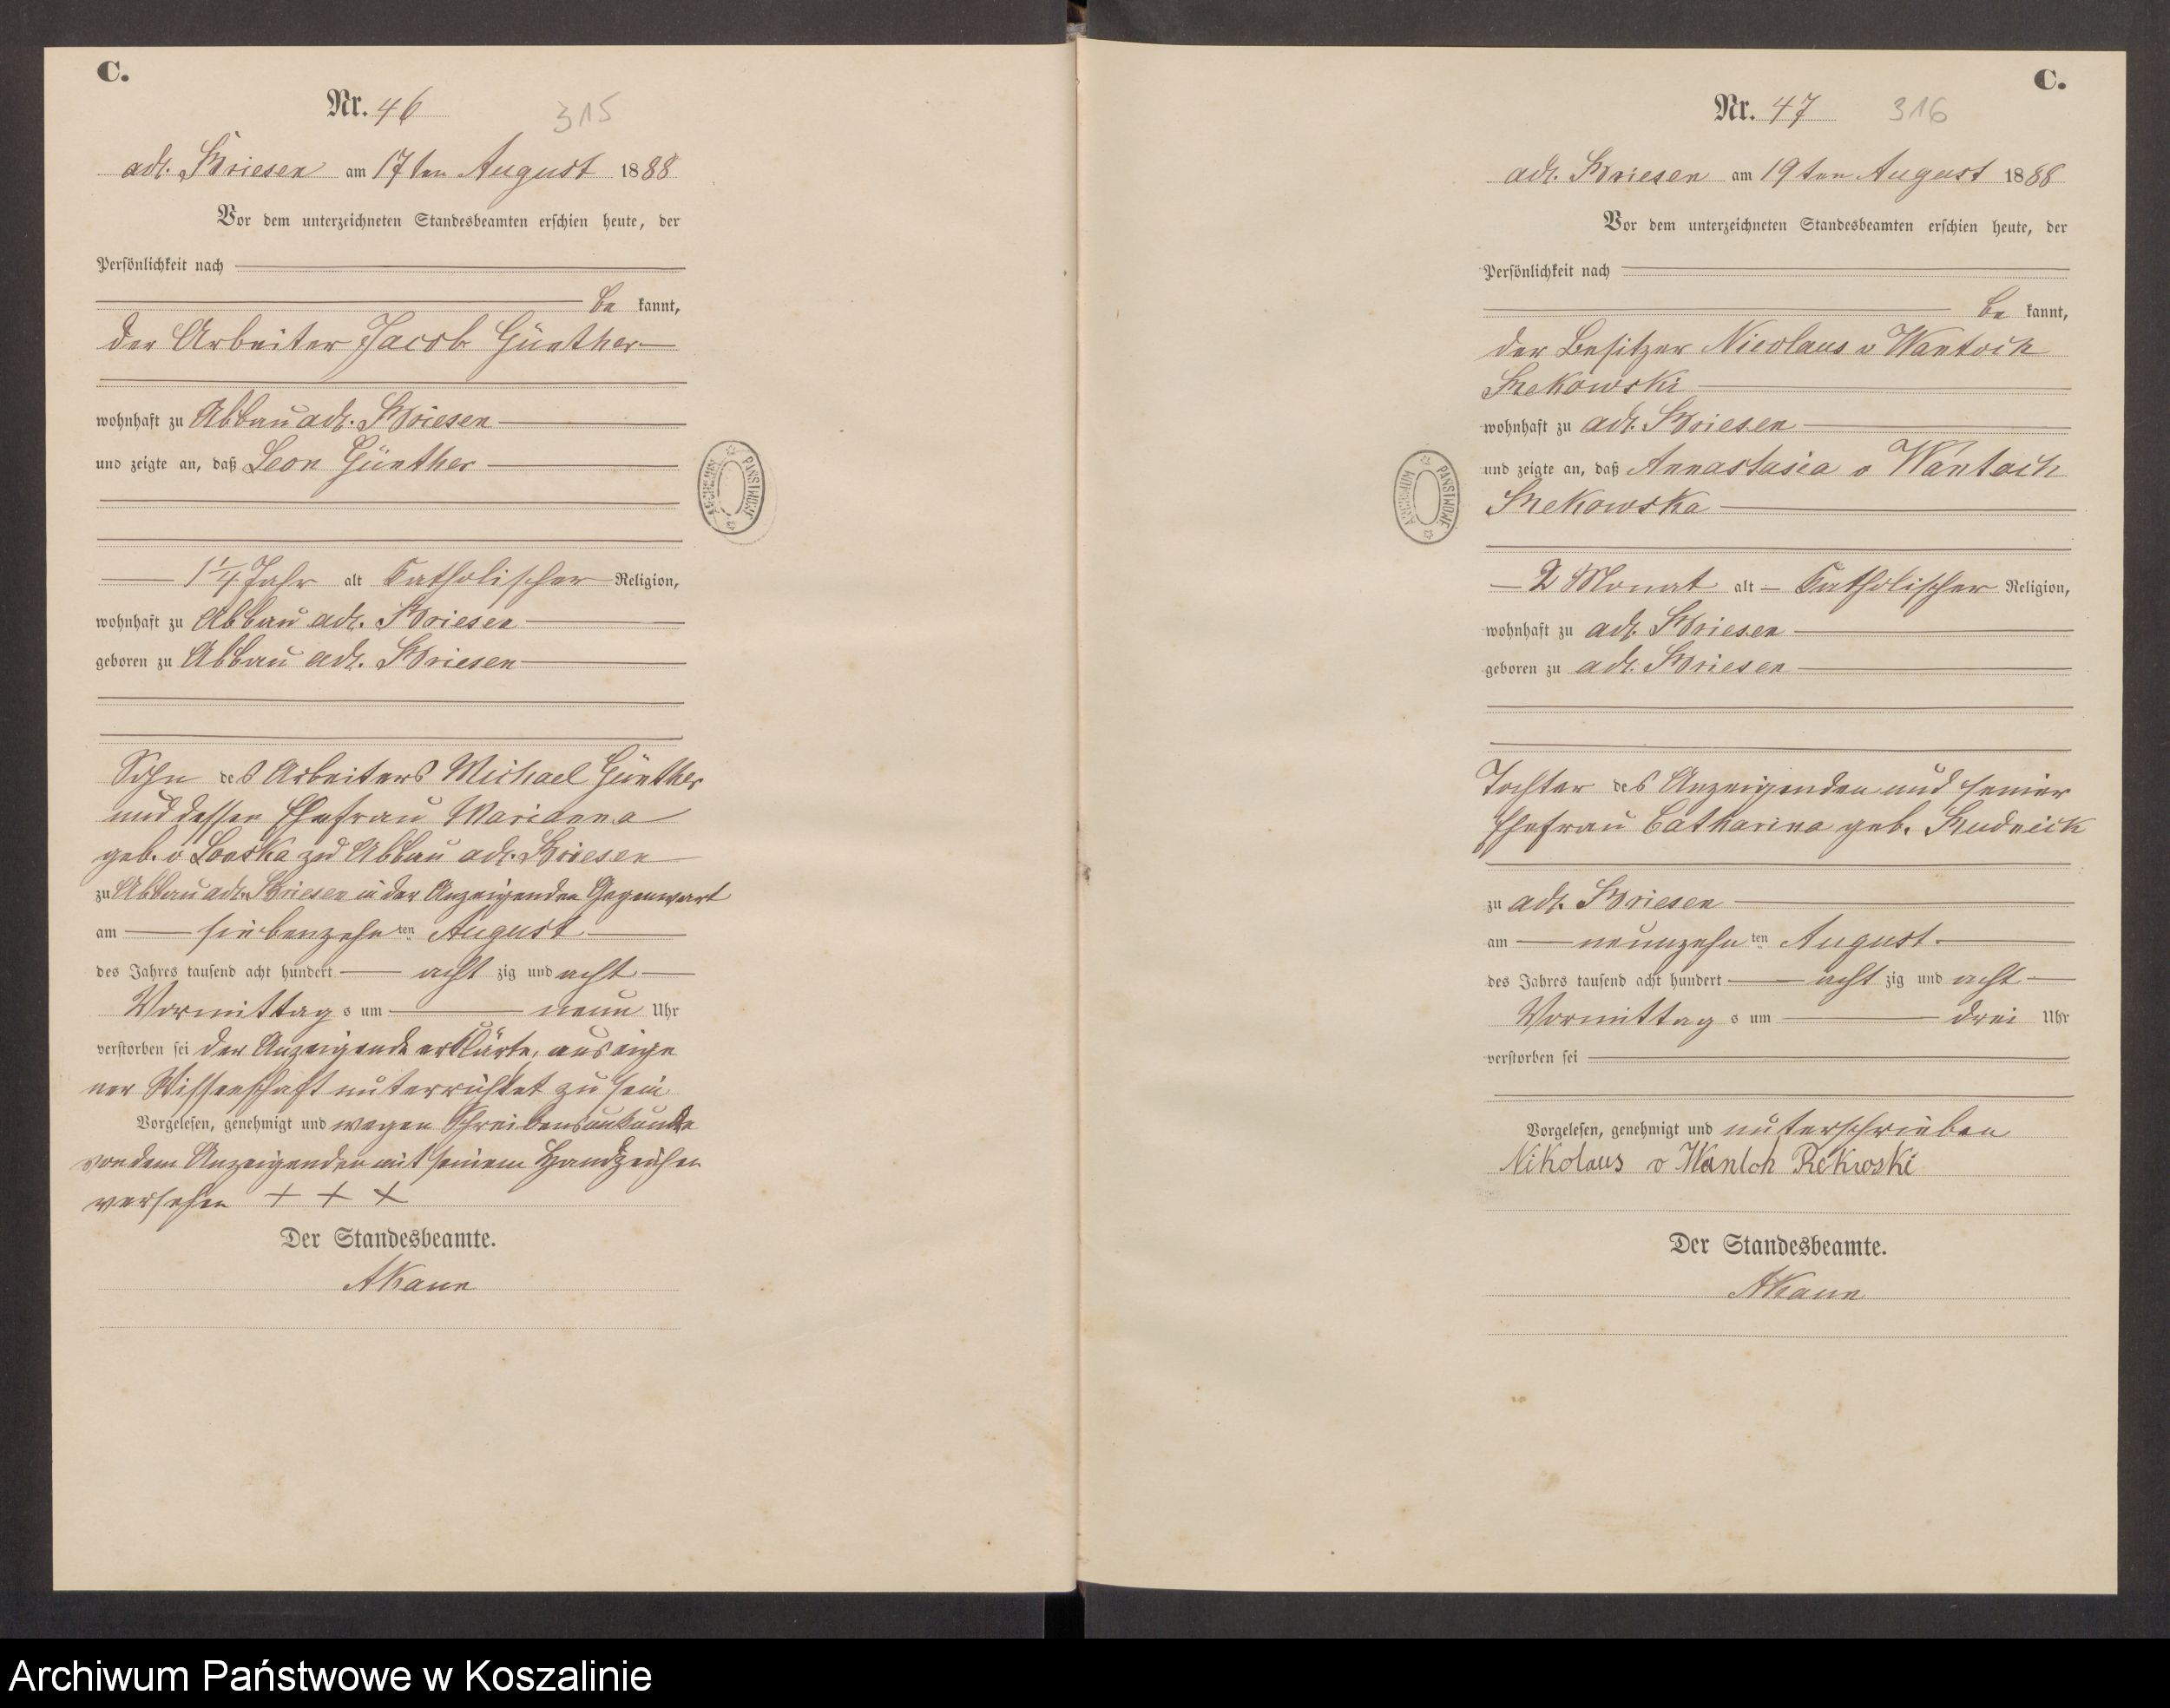 C.
Nr. 46
315
adl. Briesen am 17ten August 1888
Vor dem unterzeichneten Standesbeamten erschien heute, der
Persönlichkeit nach
be kannt,
der Arbeiter Jacob Günther
wohnhaft zu Abbau adl. Briesen
und zeigte an, daß Leon Günther
1 1/4 Jahr alt Katholischer Religion,
wohnhaft zu Abbau adl. Briesen
geboren zu Abbau adl. Briesen
Sohn des Arbeiters Michael Günther
und dessen Ehefrau Marianna
geb. v zu Abbau adl. Briesen
zu Abbau adl. Briesen in der Anzeigenden Gegenwart
am siebenzehn ten August
des Jahres tausend acht hundert acht zig und acht
Vormittag s um neun Uhr
verstorben sei der Anzeigende erklärte, aus eige
ner Wissenschaft unterrichtet zu sein
Vorgelesen, genehmigt und wegen Schreibensunkunde
von dem Anzeigenden mit seinem Handzeichen
versehen + + +
Der Standesbeamte.
AKaun
ARCHIWUM PAŃSTWOWE
C.
Nr. 47
316
adl. Briesen am 19ten August 1888
Vor dem unterzeichneten Standesbeamten erschien heute, der
Persönlichkeit nach
be kannt,
der Besitzer Nicolaus v Wantoch
Rekowski
wohnhaft zu adl. Briesen
und zeigte an, daß Annastasia v Wantoch
Rekowska
2 Monat alt Katholischer Religion,
wohnhaft zu adl. Briesen
geboren zu adl. Briesen
Tochter des Anzeigenden und seiner
Ehefrau Catharina geb. Rudnick
zu adl. Briesen
am neunzehn ten August
des Jahres tausend acht hundert acht zig und acht
Vormittag s um drei Uhr
verstorben sei
Vorgelesen, genehmigt und unterschrieben
Nikolaus v Wantoh Rekwoski
Der Standesbeamte.
AKaun
ARCHIWUM PAŃSTWOWE
Archiwum Państwowe w Koszalinie